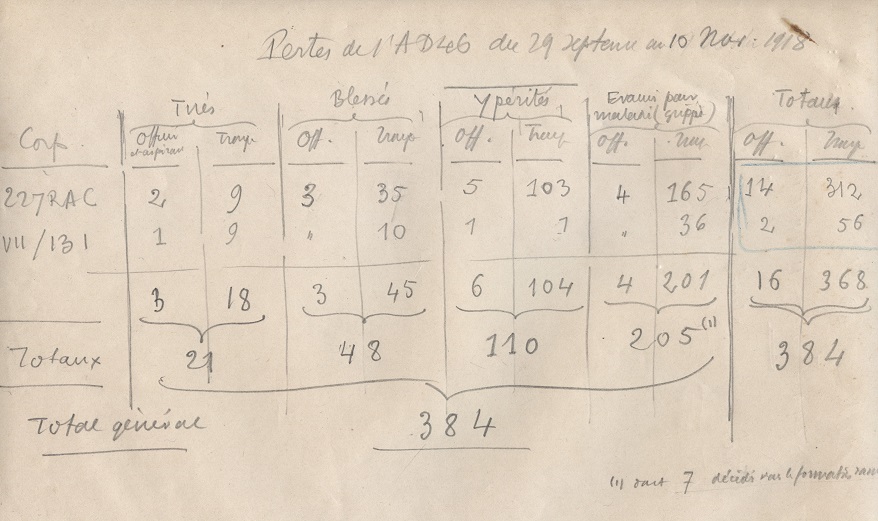 Pertes de l'AD46 du 29 septembre au 10 Nov. 1918
Corps Tués Blessés Ypérités Evacués pour maladie (grippe) Totaux
Officiers et aspirants Troupe Off. Troupe Off. Troupe Off. Troupe Off. Troupe
227 RAC 2 9 3 35 5 103 4 165 14 312
VII/131 1 9 " 10 1 1 " 36 2 56
3 18 3 45 6 104 4 201 16 368
Totaux 21 48 110 205(1) 384
Total général 384
(1) dont 7 décédés